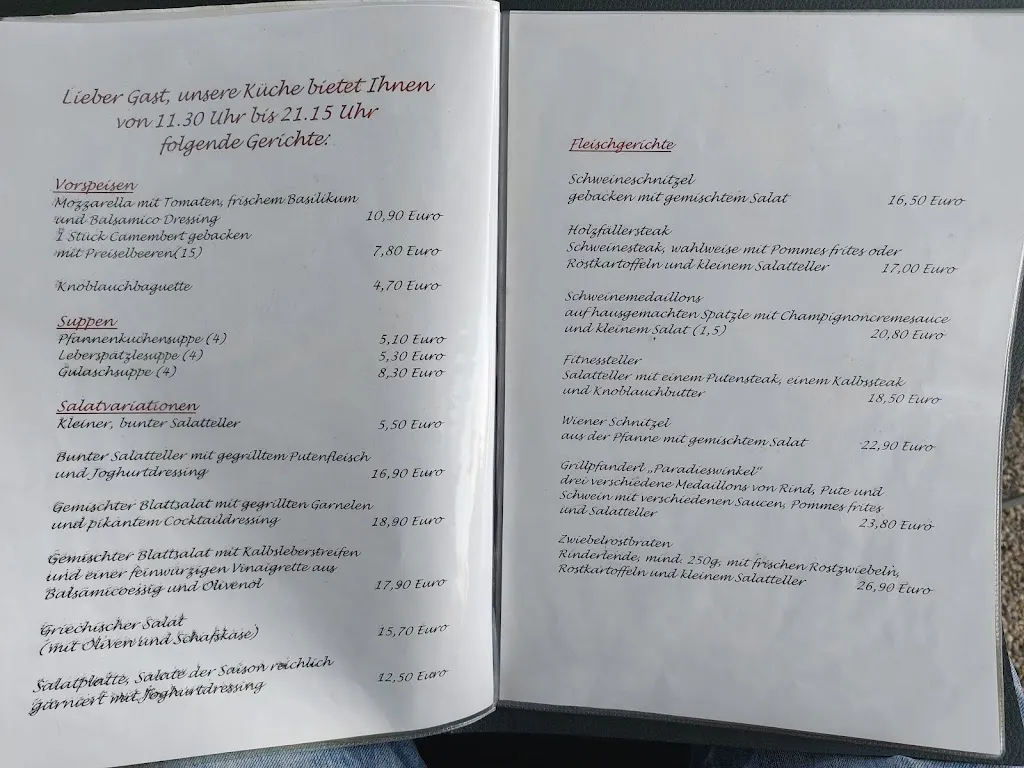 Lieber Gast, unsere Küche bietet Ihnen
von 11.30 Uhr bis 21.15 Uhr
folgende Gerichte:
Vorspeisen
Mozzarella mit Tomaten, frischem Basilikum
und Balsamico Dressing 10,90 Euro
1 Stück Camembert gebacken
mit Preiselbeeren(15) 7,80 Euro
Knoblauchbaguette 4,70 Euro
Suppen
Pfannenkuchensuppe (4) 5,10 Euro
Leberspätzlesuppe (4) 5,30 Euro
Gulaschsuppe (4) 8,30 Euro
Salatvariationen
Kleiner, bunter Salatteller 5,50 Euro
Bunter Salatteller mit gegrilltem Putenfleisch
und Joghurtdressing 16,90 Euro
Gemischter Blattsalat mit gegrillten Garnelen
und pikantem Cocktaildressing 18,90 Euro
Gemischter Blattsalat mit Kalbsleberstreifen
und einer feinwürzigen Vinaigrette aus
Balsamicoessig und Olivenöl 17,90 Euro
Griechischer Salat
(mit Oliven und Schafskäse) 15,70 Euro
Salatplatte, Salate der Saison reichlich
garniert mit Joghurtdressing 12,50 Euro
Fleischgerichte
Schweineschnitzel
gebacken mit gemischtem Salat 16,50 Euro
Holzfällersteak
Schweinesteak, wahlweise mit Pommes frites oder
Röstkartoffeln und kleinem Salatteller 17,00 Euro
Schweinemedaillons
auf hausgemachten Spätzle mit Champignoncremesauce
und kleinem Salat (1,5) 20,80 Euro
Fitnessteller
Salatteller mit einem Putensteak, einem Kalbssteak
und Knoblauchbutter 18,50 Euro
Wiener Schnitzel
aus der Pfanne mit gemischtem Salat 22,90 Euro
Grillpfanderl „Paradieswinkel"
drei verschiedene Medaillons von Rind, Pute und
Schwein mit verschiedenen Saucen, Pommes frites
und Salatteller 23,80 Euro
Zwiebelrostbraten
Rinderlende, mind. 250g, mit frischen Röstzwiebeln,
Röstkartoffeln und kleinem Salatteller 26,90 Euro